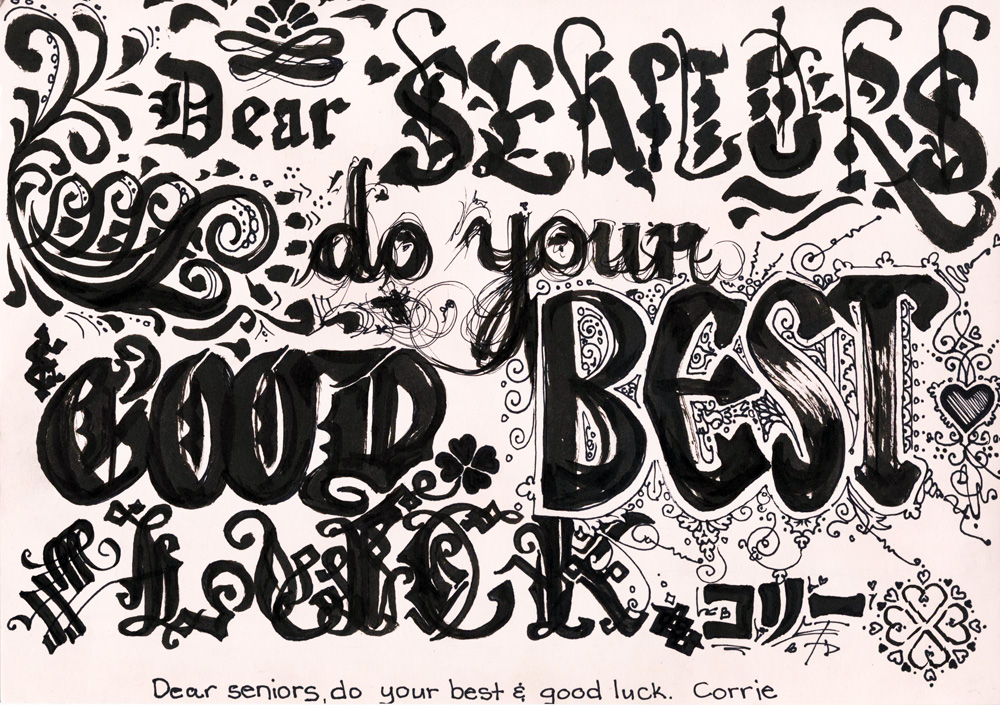 Dear SENIORS
do your BEST
GOOD
LUCK コリー
Dear seniors, do your best & good luck. Corrie